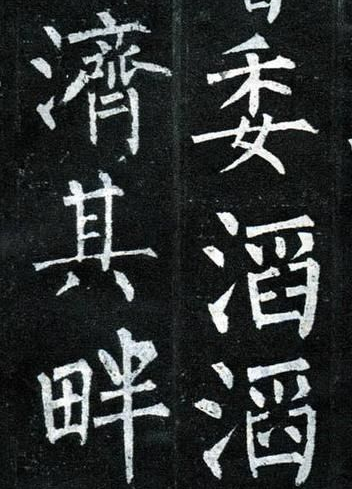 委滔滔
濟其畔